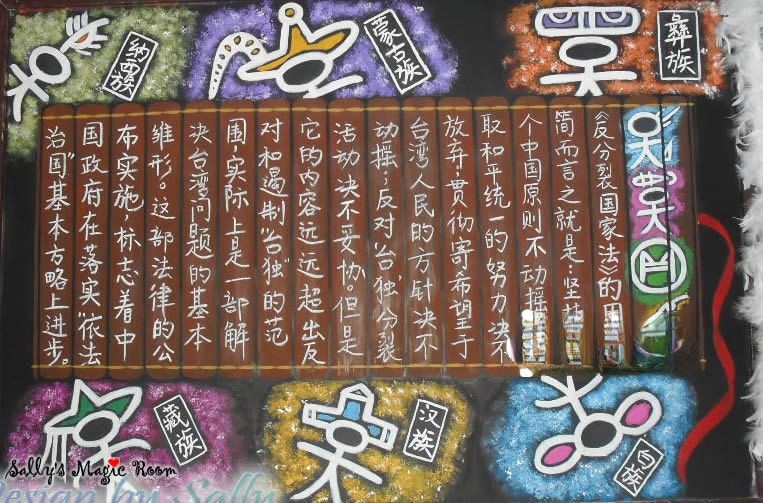 纳西族
蒙古族
彝族
《反分裂国家法》的
简而言之就是:坚持
个中国原则不动摇
取和平统一的努力决不
放弃;贯彻寄希望于
台湾人民的方针决不
动摇;反对“台独”分裂
活动决不妥协。但是
它的内容远远超出反
对和遏制“台独”的范
围,实际上是一部解
决台湾问题的基本
雏形。这部法律的公
布实施,标志着中
国政府在落实“依法
治国”基本方略上进步。
藏族
汉族
白族
Sally's Magic Room
Design by Sally